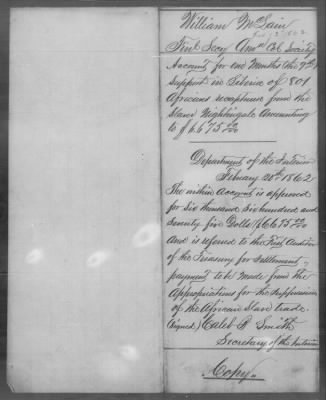 William McLain
Feby 12 1862
Finl Secy Amn Col. Society
Account for one Months (the 9th)
Support in Liberia of 801
Africans recaptured from the
Slaver Nightingale Amounting
to $6.675 00/100
Department of the Interior
February 20th 1862
The within Account is approved
for Six thousand Six hundred and
Seventy five Dolls ($6.675 00/100)
And is referred to the First Auditor
of the Treasury for Settlement -
payment to be made from the
Appropriations for the Suppression
of the African Slave trade.
(Signed) Caleb B Smith
Secretary of the Interior
Copy.